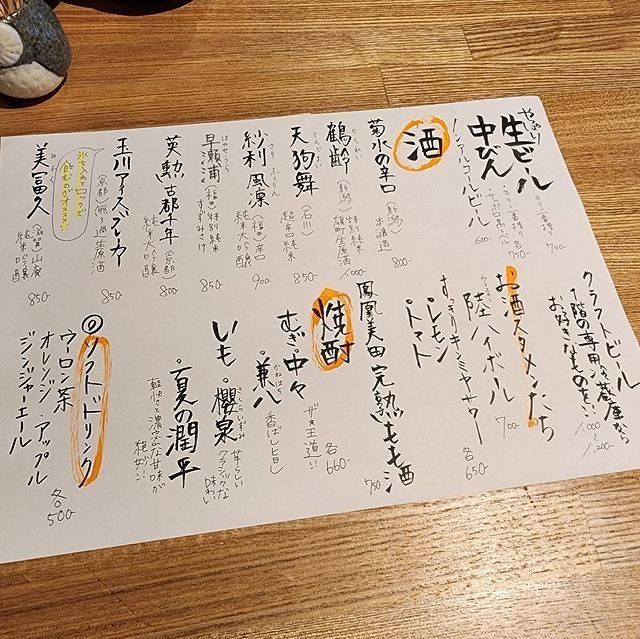 やっぱり
生ビール 700
中びん
キリン一番搾り
サッポロ黒ラベル 各750
ノンアルコールビール 600
酒
菊水の辛口 (新潟) 本醸造 800
かくれい
鶴齢 (新潟) 特別純米 雄町生原酒 1000
てんぐまい
天狗舞 (石川) 超辛口純米 850
さり ふうりん
紗利 風凛 (福井) 辛口 純米大吟醸 900
はやせうら
早瀬浦 (福井) 特別純米 850
英勲 古都千年 (京都) 純米大吟醸 800
玉川アイスブレーカー (京都) 無ろ過生原酒 850
氷を入れてロックで
飲むのがオススメ
みふく
美冨久 (滋賀) 山廃 純米吟醸 850
クラフトビール
1階の専用冷蔵庫から
お好きなものを… 1,000〜1,200-
お酒スタメンたち
陸ハイボール 700
すっきりキンミヤサワー
・レモン
・トマト 各650
鳳凰美田 完熟もも酒 750
焼酎 各660-
むぎ・中々 ザ・王道
かねはち
・兼八 香ばし旨し
さくらいずみ
いも・櫻泉 芋らしい クラシックな味わい
・夏の潤平 軽快さと濃密な甘味が
◎ソフトドリンク
ウーロン茶
オレンジ・アップル
ジンジャーエール 各500-